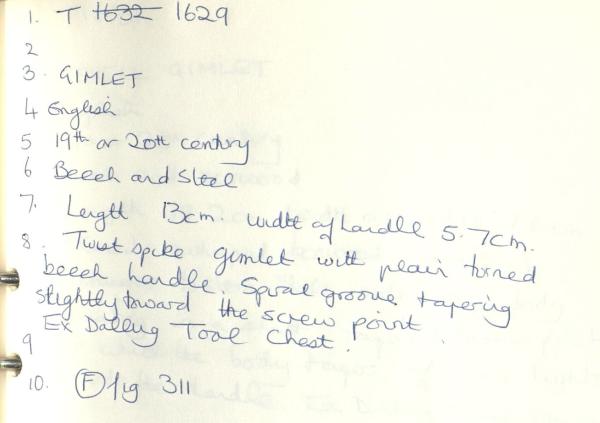 1. T 1632 1629
2
3. GIMLET
4 English
5 19th or 20th century
6 Beech and Steel
7. Length 13cm. width of handle 5.7cm.
8. Twist spike gimlet with plain turned
beech handle Spiral groove tapering
slightly toward the screw point.
Ex Dalling Tool Chest.
9
10. (F) fig 311